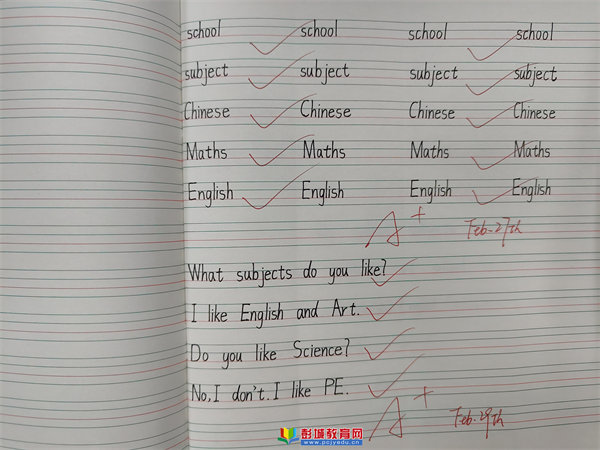 school school school school
subject subject subject subject
Chinese Chinese Chinese Chinese
Maths Maths Maths Maths
English English English English
A+ Feb-27th
What subjects do you like?
I like English and Art.
Do you like Science?
No, I don't. I like PE.
A+ Feb-29th
彭城教育网
www.pcjyedu.cn